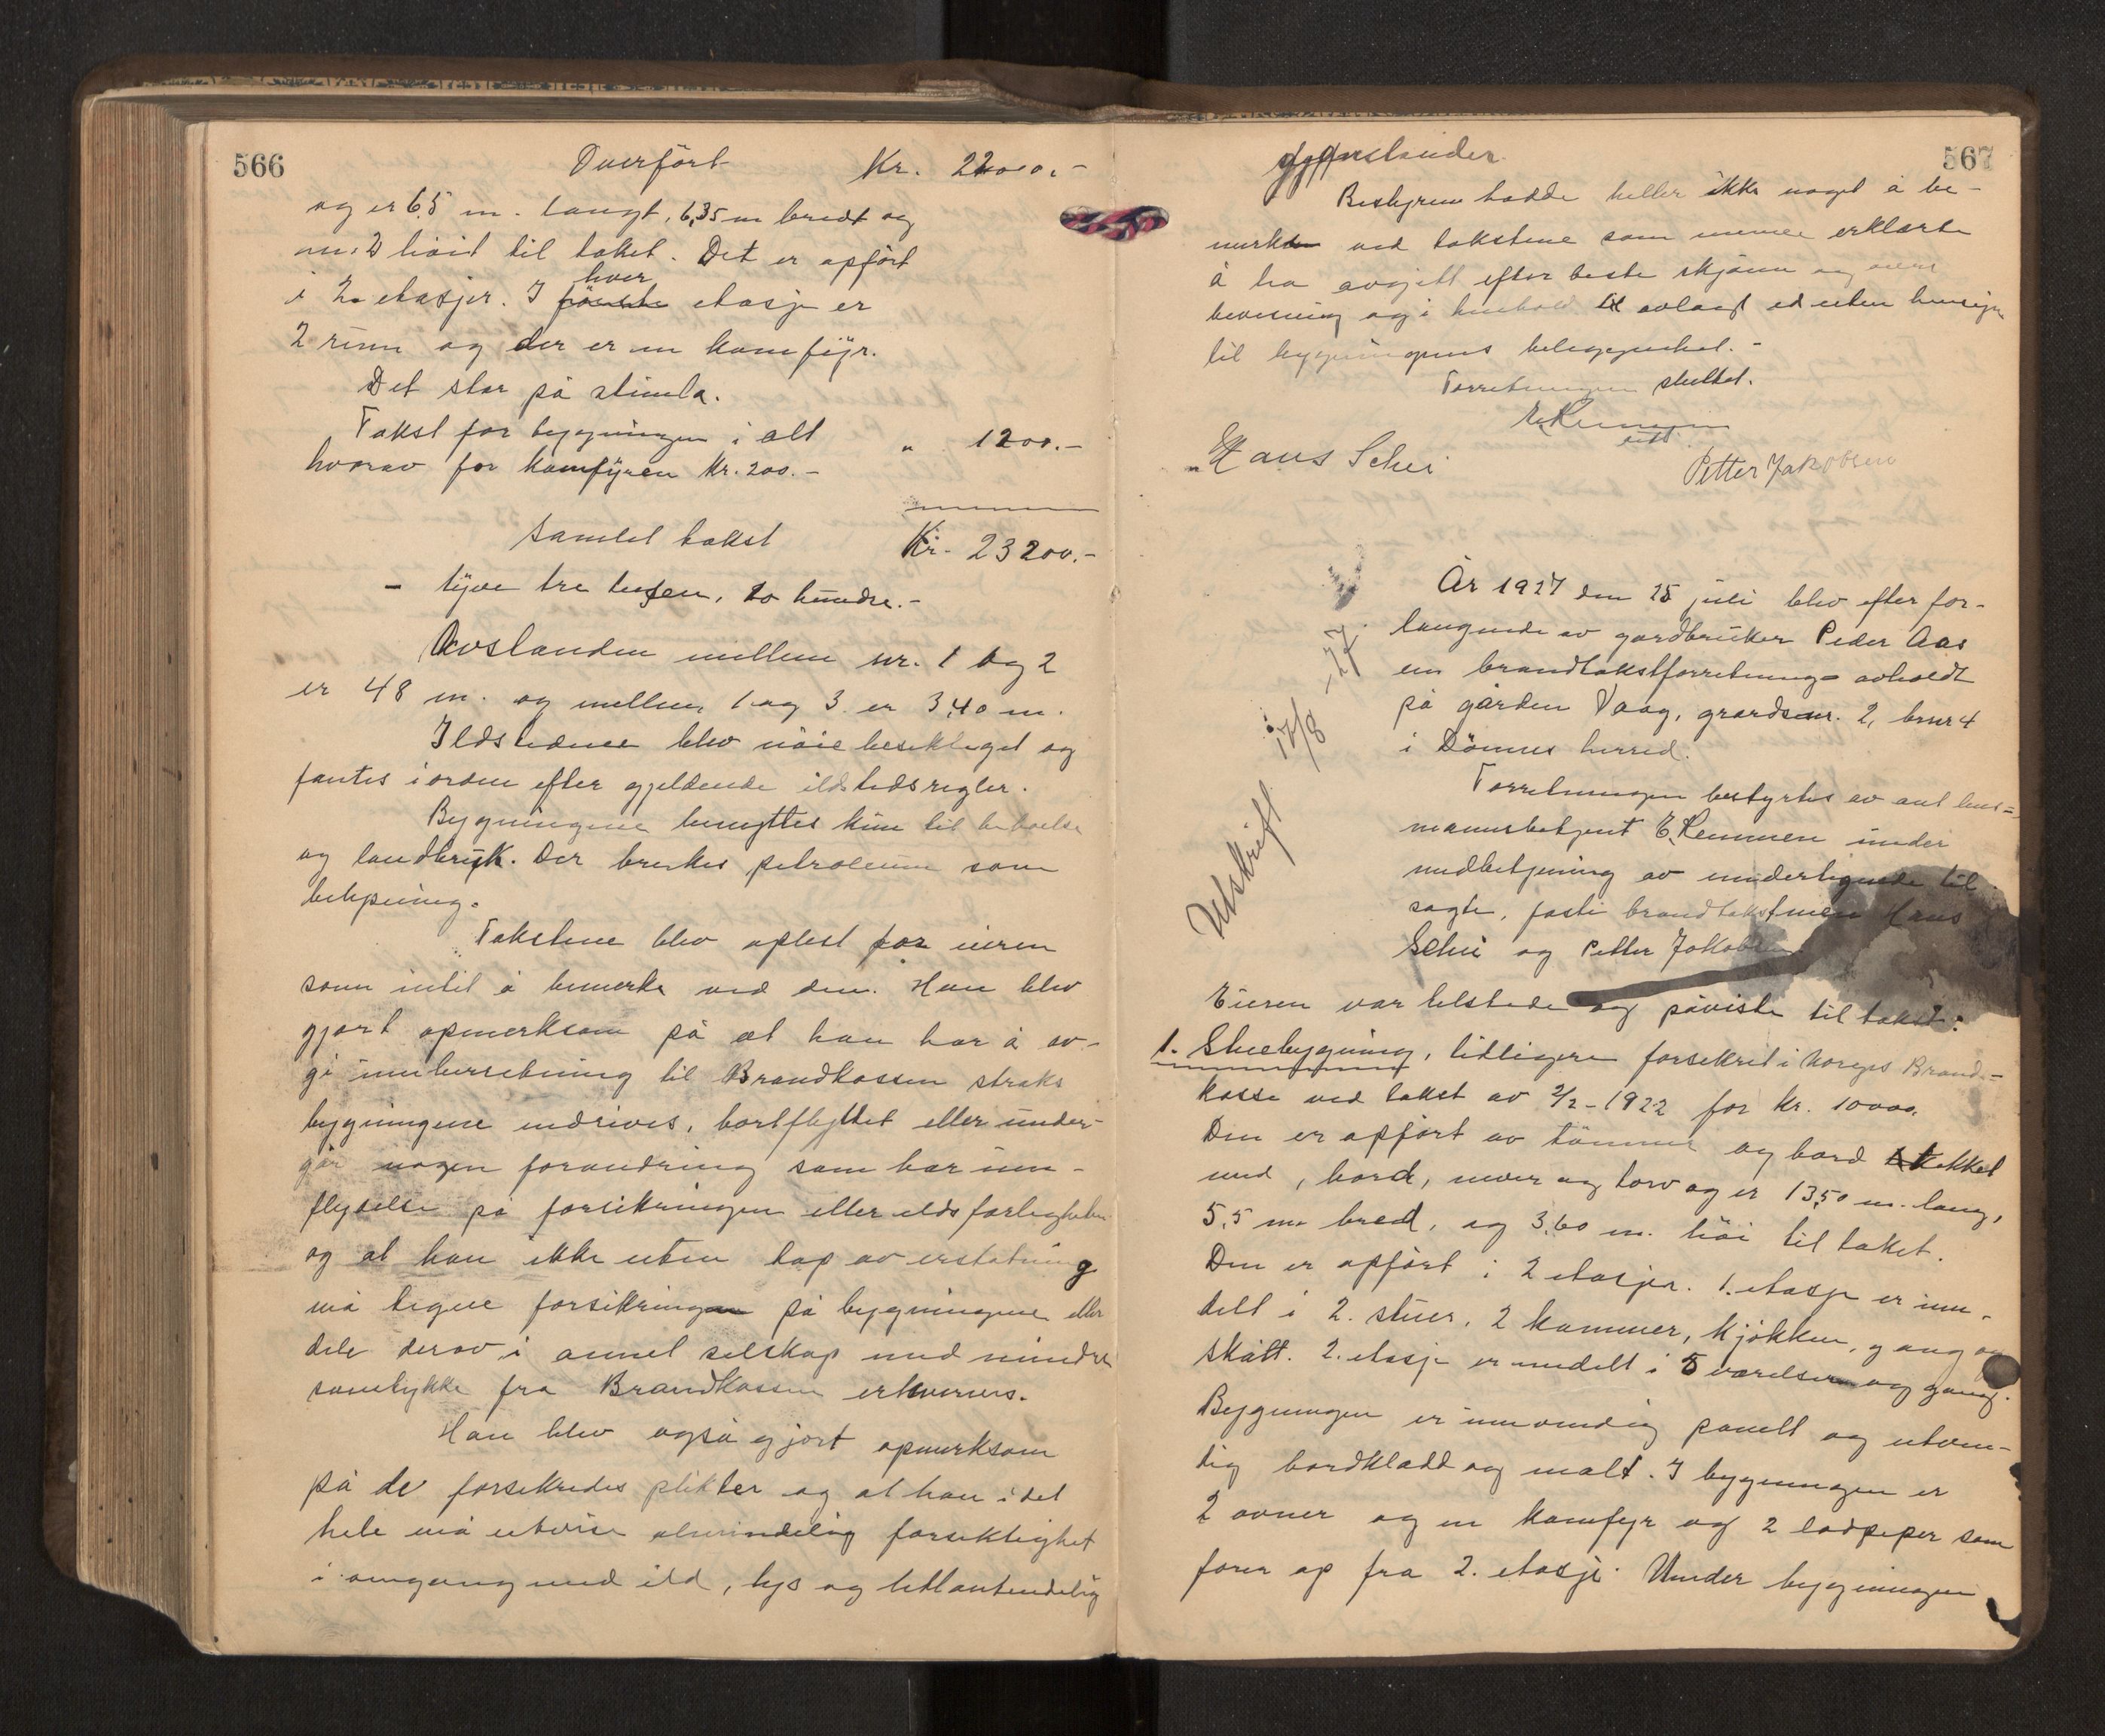 566
Overført Kr. 22000.-
og er 6,5 m. langt, 6,35 m bredt og
m: høit til taket. Det er opført
hver
i 2 etasjer. I første etasje er
2 rum og der er en komfyr.
Det står på stimla.
Takst for bygningen i alt " 1200.-
hvorav for komfyren Kr. 200.-
Samlet takst Kr. 23200.-
- tyve tre tusen, to hundre.-
Avstanden mellem nr. 1 og 2
er 48 m. og mellem 1 og 3 er 3,40 m.
Ildstedene blev nøie besiktiget og
fantes i orden efter gjeldende ildstedsregler.
Bygningene benyttes kun til beboelse
og landbruk. Der brukes petroleum som
belysning.
Takstene blev oplest for eieren
som intet å bemerke ved dem. Han blev
gjort opmerksom på at han har å av-
gi innberetning til Brandkassen straks
bygningene nedrives, bortflyttet eller under-
går nogen forandring som har inn-
flydelse på forsikringen eller ildsfarligheten
og at han ikke uten tap av erstatning
må tegne forsikringen på bygningene eller
dele derav i annet selskap med mindre
samtykke fra Brandkassen erhverves.
Han blev også gjort opmerksom
på de forsikredes plikter og at han i det
hele må utvise almindelig forsiktighet
i omgang med ild, lys og lettantendelig
567
gjenstander.
Bestyreren hadde heller ikke noget å be-
merke ved takstene som mennene erklærte
å ha avgitt efter beste skjønn og overe
bevisning og i henhold til avlagt ed uten hensyn
til bygningens beliggenhet.-
Forretningen sluttet.
E. Remmen
Hans Schei
Petter Jakobsen
Utskrift 17/8 -27.
År 1927 den 25 juli blev efter for-
langende av gårdbruker Peder Aas
en brandtakstforretning avholdt
på gården Vaag, gårdsnr. 2, brnr 4
i Dønnes herred.
Forretningen bestyrtes av aut lens-
mannsbetjent E. Remmen under
medbetjening av undertegnede til
sagte, faste brandtakstmenn Hans
Schei og Petter Jakobsen
Eieren var tilstede og påviste til takst:
1. Stuebygning, tidligere forsikret i Norges Brand-
kasse ved takst av 2/2-1922 for kr. 10000.
Den er opført av tømmer og bord tekket
med, bord, never og torv og er 13,50 m. lang,
5,5 m bred, og 3,60 m. høi til taket.
Den er opført i 2 etasjer. 1. etasje er inn-
delt i 2. stuer, 2 kammer, kjøkken, gang og
skått. 2. etasje er inndelt i 5 værelser og gang.
Bygningen er innvendig panelt og utven-
dig bordkladd og malt. I bygningen er
2 ovner og en komfyr og 2 lodpiper som
fører op fra 2. etasje. Under bygningen